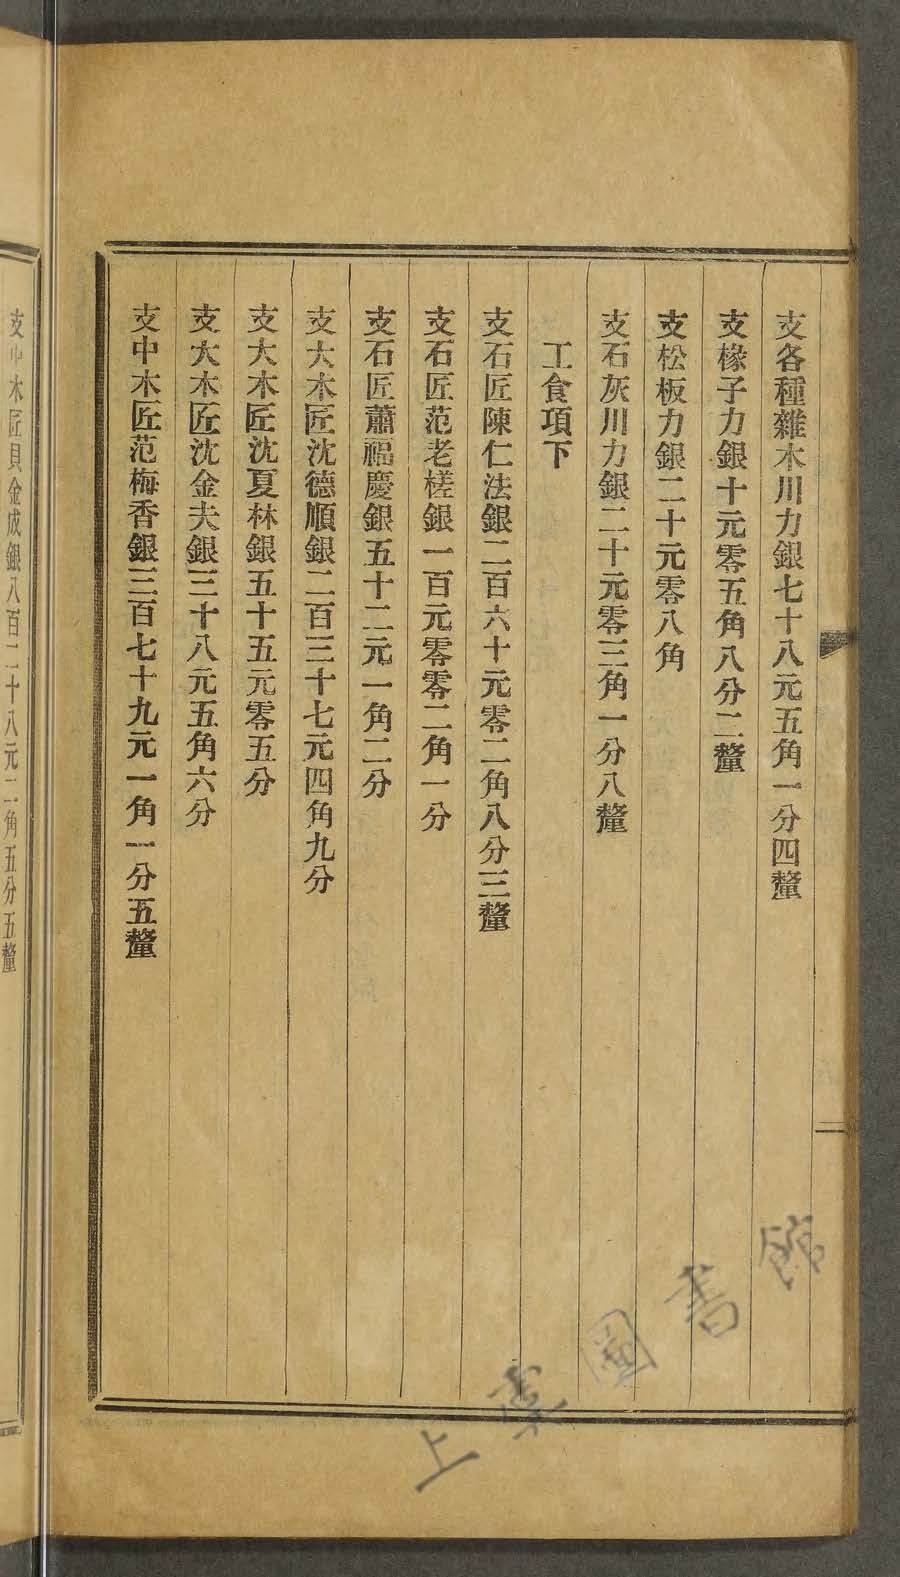 支各種雜木川力銀七十八元五角一分四釐
支椽子力銀十元零五角八分二釐
支松板力銀二十元零八角
支石灰川力銀二十元零三角一分八釐
工食項下
支石匠陳仁法銀二百六十元零二角八分三釐
支石匠范老槎銀一百元零零二角一分
支石匠蕭福慶銀五十二元一角二分
支大木匠沈德順銀二百三十七元四角九分
支大木匠沈夏林銀五十五元零五分
支大木匠沈金夫銀三十八元五角六分
支中木匠范梅香銀三百七十九元一角一分五釐
支中木匠貝金成銀八百二十八元二角五分五釐
二
上虞圖書館